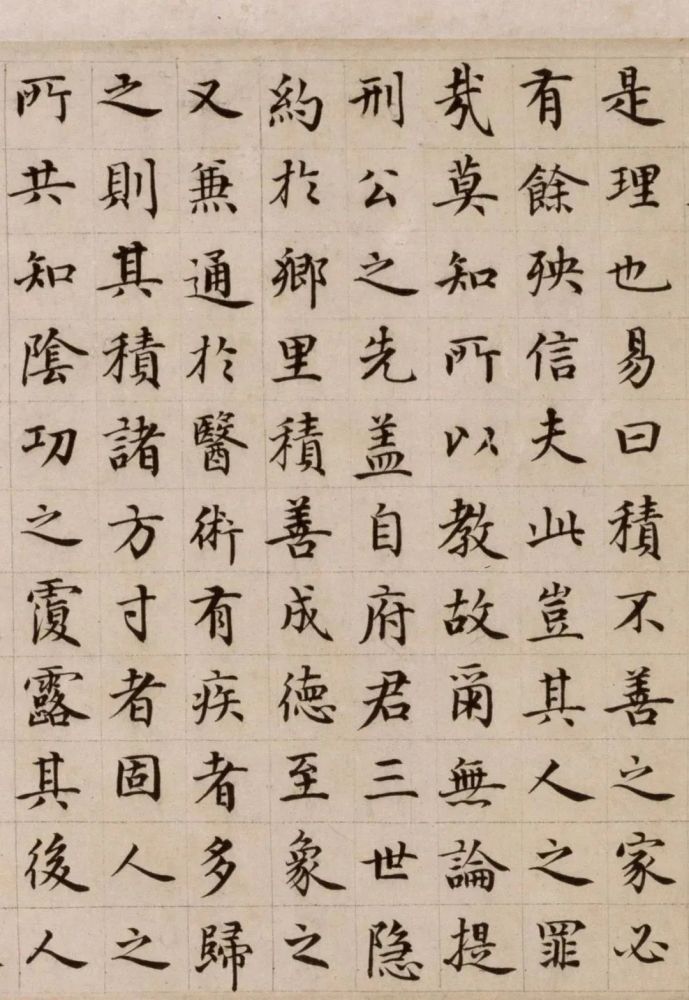 是理也易曰積不善之家必
有餘殃信夫此豈其人之罪
㢤莫知所以教故爾無論提
刑公之先盖自府君三世隐
約於鄉里積善成德至象之
又兼通於醫術有疾者多歸
之則其積諸方寸者固人之
所共知陰功之覆露其後人